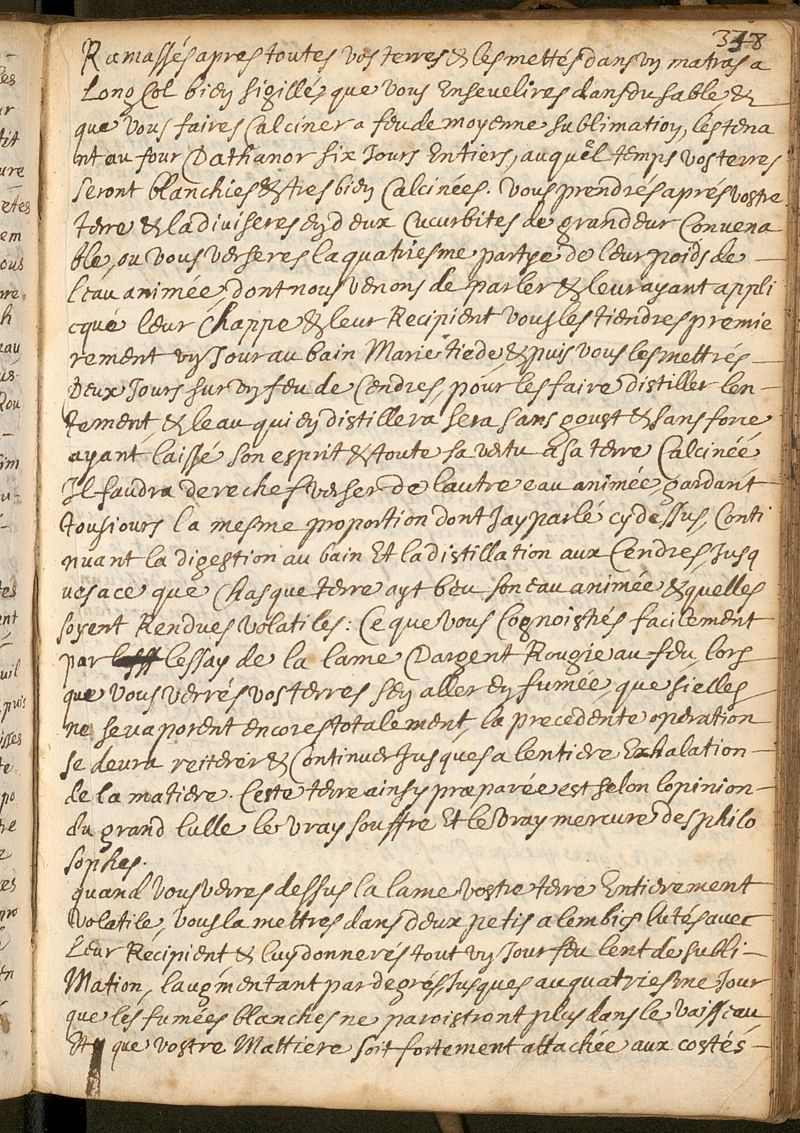 348
Ramassés apres toutes vos terres & les mettés dans vn matras a
Long Col bien sigillé, que vous Ensevelires dans du sable, &
que vous faires Calciner a feu de moyenne sublimation, les tena
nt au four Dathanor six Jours Entiers, auquel temps vos terres
seront blanchies & tres bien Calcinées. vous prendrés aprés vostre
terre & la diuiseres en deux Cucurbites de grandeur Convena
ble, ou vous verseres la quatriesme partye de leur poids de
leau animée, dont nous venons de parler & leur ayant appli
cqué leur Chappe & leur Recipient vous les tiendres premie
rement vn Jour au bain Marie tiede & puis vous les mettrés
Deux Jours sur vn feu de Cendres, pour les faire distiller len
tement, & leau qui en distillera sera sans goust & sans force
ayant laissé son esprit & toute sa vertu a sa terre Calcinée
Il faudra derechef verser de lautre eau animée, gardant
tousiours la mesme proportion dont Jay parlé cy dessus, Conti
nuant la digestion au bain Et la distillation aux Cendres, Jusq
ues a ce que Chasque terre ayt beu son eau animée & quelles
soyent Rendues volatiles: Ce que vous Cognoistrés facilement
par lessay de la lame Dargent Rougie au feu, lors
que vous verrés vos terres sen aller en fumée, que si elles
ne sevaporent encores totalement, la precedente operation
se deura reiterer & Continuer Jusques a lentiere Exhalation
de la matiere. Ceste terre ainsy præparée est selon lopinion
du grand lulle le vray souffre Et le vray mercure des philo
sophes.
quand vous verres dessus la lame vostre terre Entierement
volatile, vous la mettres dans deux petis alembics lutés avec
Leur Récipient & luy donnerés tout vn Jour feu lent de subli
Mation, laugmentant par degrés, Jusques au quatriesme Jour
que les fumées blanches ne paroistront plus dans le vaisseau
Et que vostre Mattiere soit fortement attachée aux costés